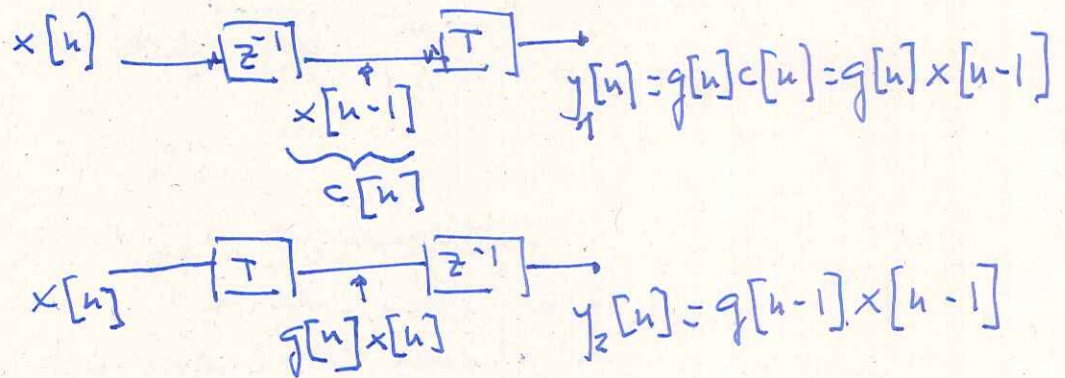 x[n] z⁻¹ T
y₁[n] = g[n]c[n] = g[n] x[n-1]
x[n-1]
c[n]
x[n] T z⁻¹
g[n]x[n] y₂[n] = g[n-1].x[n-1]